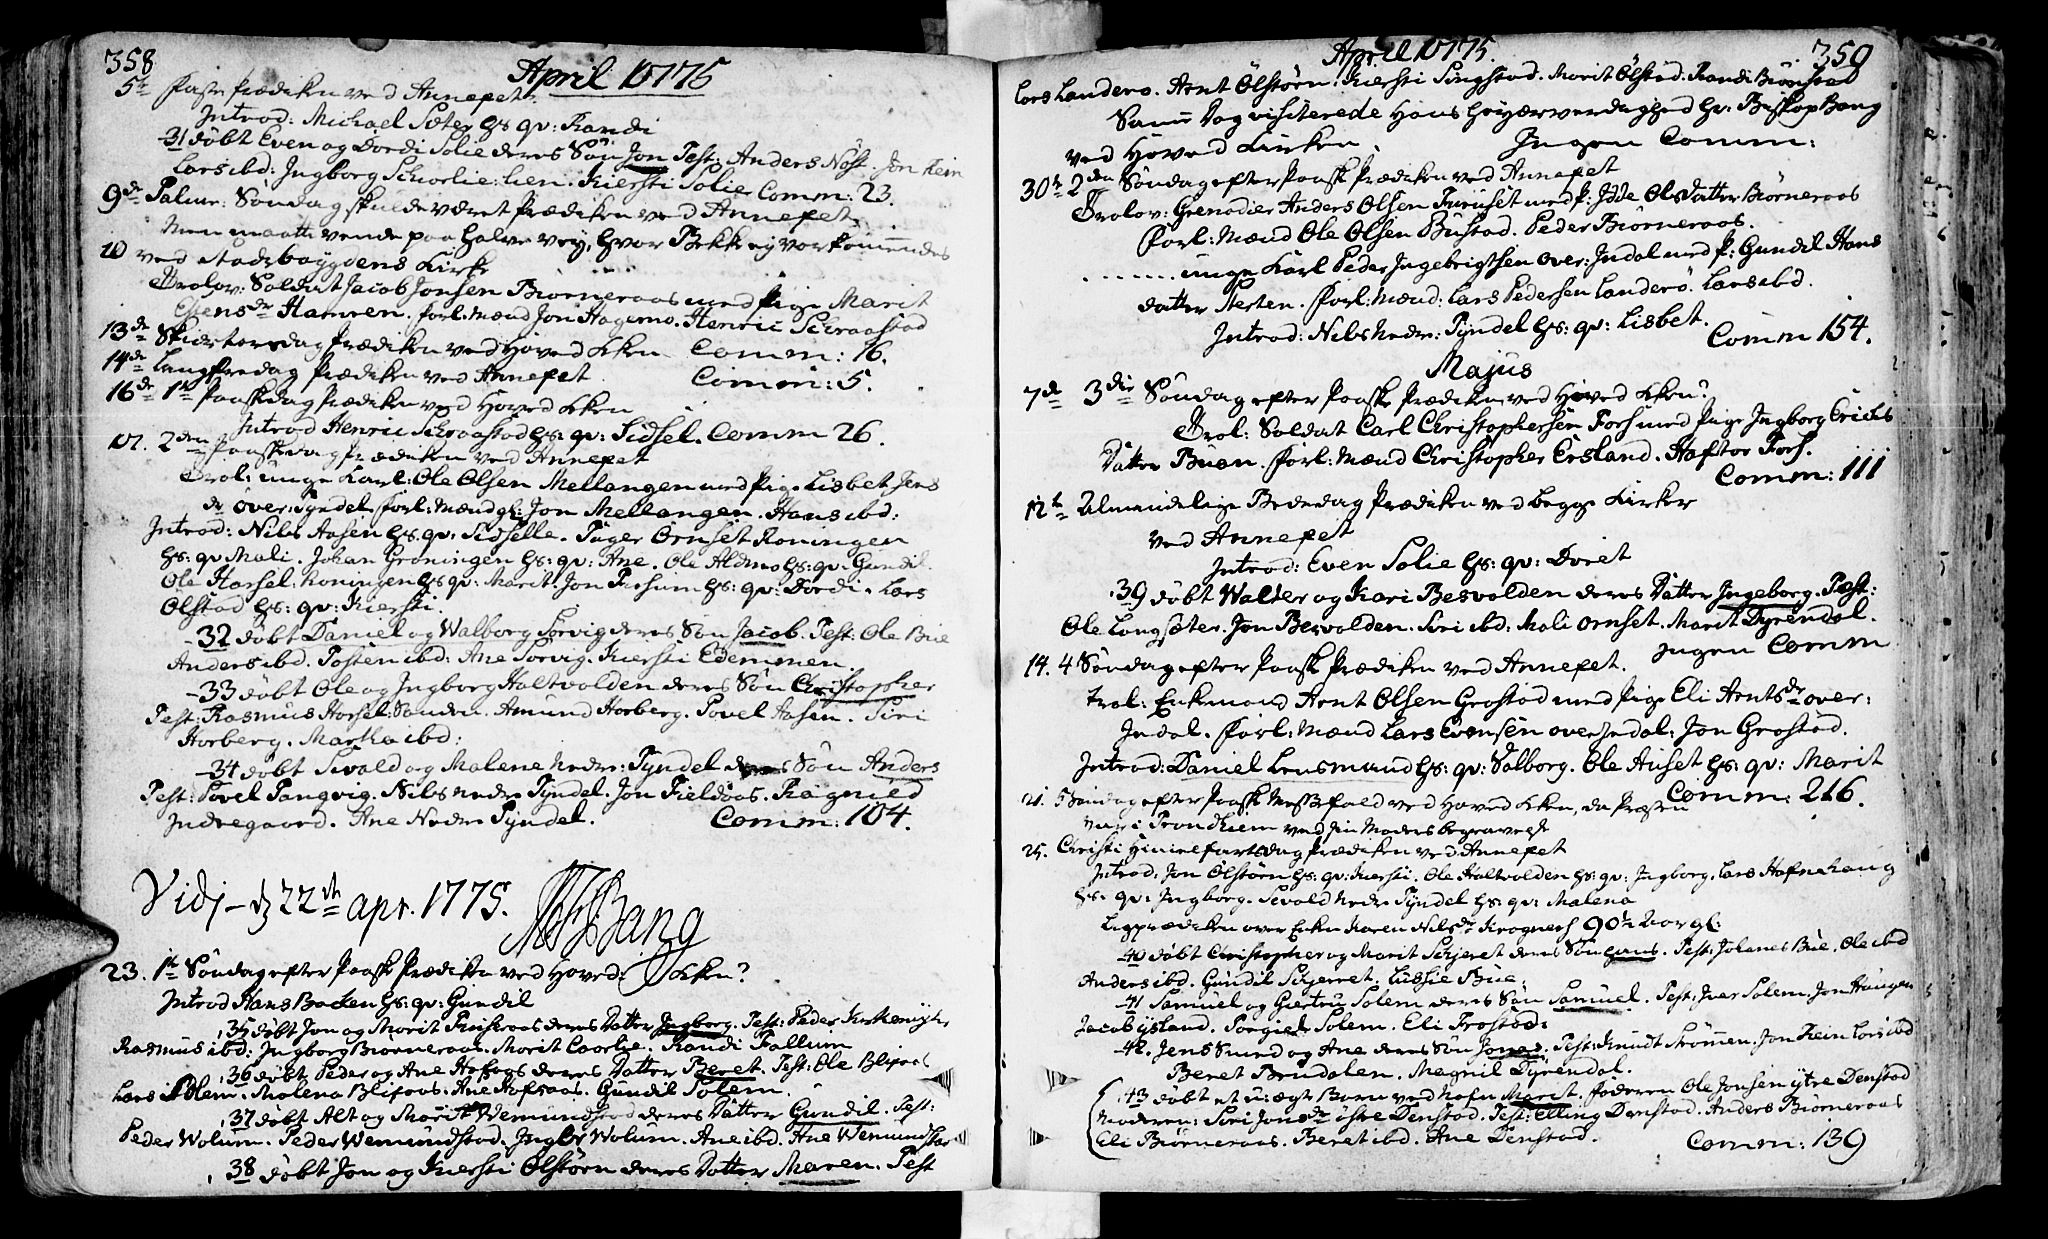 358
April 1775
5te Faste Prædiken ved Annexet
Introd: Michael Sæter Hs: qv: Randi
31 døbt Even og Dordi Solie deres Søn Jon Test: Anders Nøst. Jon Rein
Lars ibd: Ingborg Schorlie: lien. Kiersti Solie Comm: 23.
9de Palme: Søndag skulde været Prædiken ved Annexet
Men maatte vende paa halve vey, hvor Bekk ey var kommendes
10 ved Stadsbøygdens Kirke
Trolov: Soldat Jacob Jonsen Biørneraas med Pige Marit
Estensdr Hamren. forl: Mænd Jon Hagemo. Henric Schraastad
13de Skiærtorsdag Prædiken ved Hoved Kken Comm: 16.
14de Langfredag Prædiken ved Annexet. Comm: 5.
16de 1te Paaskedag Prædiken ved Hoved Kken
Introd Henric Schraastad Hs: qv: Sidsel. Comm 26.
17. 2den Paaskedag Prædiken ved Annexet
Trol: unge Karl: Ole Olsen Mellangen med Pige Lisbet Jens
dr over: Tyndel forl: Mænd gl: Jon Mellangen. Hans ibd:
Introd: Nils Aasen Hs: qv: Sidselle. Tøger Ornset Roningen
Hs: qv Mali. Johan Groningen Hs: qv: Ane. Ole Aldmo Hs: qv: Gundil
Ole Harsel: honingen Hs qv: Marit. Jon Fuhsum Hs: qv: Dordi. Lars
Olstad Hs: qv: Kiersti.
32 døbt Daniel og Walborg Sorvig deres Søn Jacob. Test: Ole Bue
Anders ibd. Tosten ibd: Ane Sorvig. Kiersti Edemmen.
33 døbt Ole og Ingborg Holtvolden deres Søn Christopher
Test: Rasmus Horsel: Sønden. Amund Horberg. Povel Aasen. Siri
Horberg. Martha ibd:
34 døbt Sivald og Malene nedre: Tyndel deres Søn Anders
Test: Povel Tangvig. Nils nedre Tyndel. Jon Fieldaas. Ragnild
Indregaard. Ane Nedre Tyndel. Comm: 104.
Vidi d 22th apr. 1775. Bang
23. 1te Søndag efter Paaske Prædiken ved Hoved: Kken
Introd Hans Backen Hs: qv: Gundil
35 døbt Jon og Morit deres Datter Ingborg. Test: Peder
Rasmus ibd: Ingborg Biørneraas. Morit Caarlie. Randi Fallum
36 døbt Peder og Ane Hofaas deres Datter Beret. Test: Ole Blixaas
Lars Solem. Malena Blixaas. Ane Hofsaas. Gundil Solem.
37 døbt Alt og Marit Wemundstad deres Datter Gundil. Test:
Peder Wolum. Peder Wemundstad. Ingbr Wolum. Ane ibd. Ane Wemundstad
38 døbt Jon og Kiersti Olstørn deres Datter Maren. Test
April 1775.
359
Lars Landerø. Arnt Ølstørn. Kiersti Singstad. Morit Ølstad. Randi Biørstad
Samme Dag visiterede Hans Høyærværdighed Hr: Biskop Bang
ved Hoved Kirken. Ingen Comm:
30te 2den Søndag efter Paaske Prædiken ved Annexet
Trolov: Grenadier Anders Olsen Furuset med P: Idde Ols Datter Biørneraas
Forl: Mænd Ole Olsen Bustad. Peder Biørneraas.
unge Karl Peder Ingebrigtsen over: Indal med P: Gundil Hans
datter Sterten. Forl: Mænd: Lars Pedersen Landerø. Lars ibd.
Introd: Nils nedre: Tyndel Hs: qv: Lisbet. Comm 154.
Majus
7de 3die Søndag efter Paaske Prædiken ved Hoved Kken
Trol: Soldat Carl Christophersen Fors med Pige Ingborg Erichs
Datter Buan. Forl: Mænd Christopher Ersland. Haftor Fors.
Comm: 111
12te Almindelige Bededag Prædiken ved begge Kirker
ved Annexet
Introd: Even Solie Hs: qv: Doret
39 døbt Walter og Kari Besvolden deres Datter Ingeborg. Test:
Ole Langsæter. Jon Besvolden. Siri ibd: Mali Ornset. Marit Dyrendal.
Ingen Comm
14. 4 Søndag efter Paaske Prædiken ved Annexet.
trol: Enkemand Arnt Olsen Grostad med Pige Eli Arntsdr over:
Indal. Forl: Mænd Lars Evensen over Indal: Jon Grostad.
Introd: Daniel Lensmand Hs: qv: Valborg. Ole Auset Hs: qv: Marit
Comm: 216.
21. 5 Søndag efter Paaske Messefald ved Hoved Kken, da Præsten
var i Trondhiem ved sin Moders begravelse
25. Christi Himmelfartsdag Prædiken ved Annexet
Introd: Jon Olstørn Hs: qv: Kiersti. Ole Holtvolden Hs: qv: Ingborg. Lars Hafnehaug
Hs: qv: Ingborg. Sevald nedre Tyndel Hs: qv: Malena
Ligprædiken over Enken Karen Nilsdr Krognes 90te Aar gl:
40 døbt Christopher og Marit Schjeret deres Søn Hans. Test: Johanes Bue, Ole ibd
Anders ibd. Gundil Schjerret. Lussie Bue.
41 Samuel og Giertru Solem deres Søn Samuel. Test: Iver Solem. Jon Haugen
Jacob Ysland. Torgier Solem. Eli Frostad:
42. Jens Smed og Ane deres Søn Jonas. Test: Knudt Strømmen. Jon Rein Lars ibd
Beret Brudalen. Magnil Dyrendal.
43 døbt et u: ægt Barn ved Nafn Marit. Faderen Ole Jonsen ytre Denstad
Moderen: Siri Jonsdr østre Denstad. Test: Elling Denstad. Anders Biørneraas
Eli Biørneraas. Beret ibd. Ane Denstad. Comm: 139